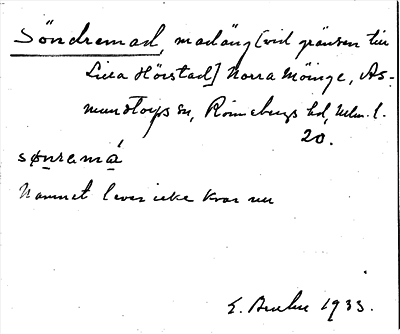 Söndremad, madäng [vid gränsen till
Lilla Hörstad] Norra Möinge, As-
mundtorps sn, Rönnebergs hd, Mlm. l.
20.
sønremá
Namnet lever icke kvar nu
E. 1933.